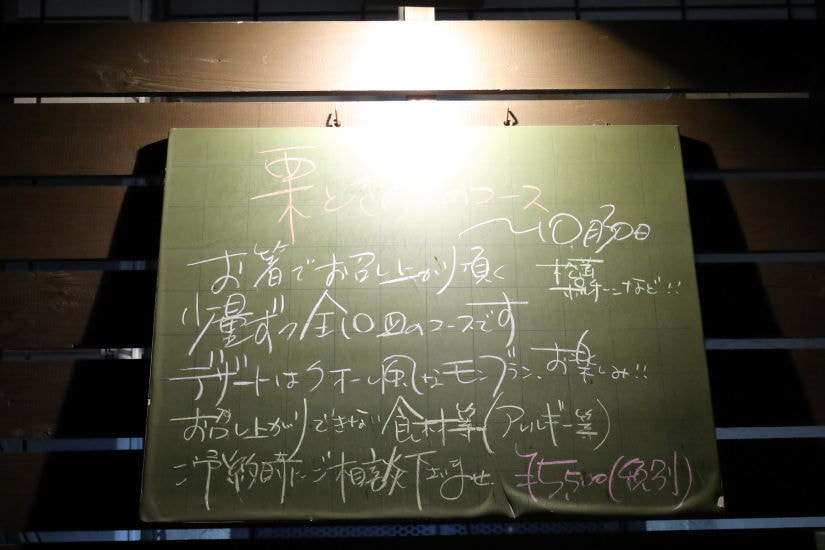 栗ときのこのコース
〜10月30日
お箸でお召し上がり頂く
松茸
ポルチーニなど!!
少量ずつ全10皿のコースです
デザートはクオーレ風なモンブラン、お楽しみ!!
お召し上がりできない食材等(アレルギー等)
ご予約時にご相談下さいませ
¥5,500(税別)